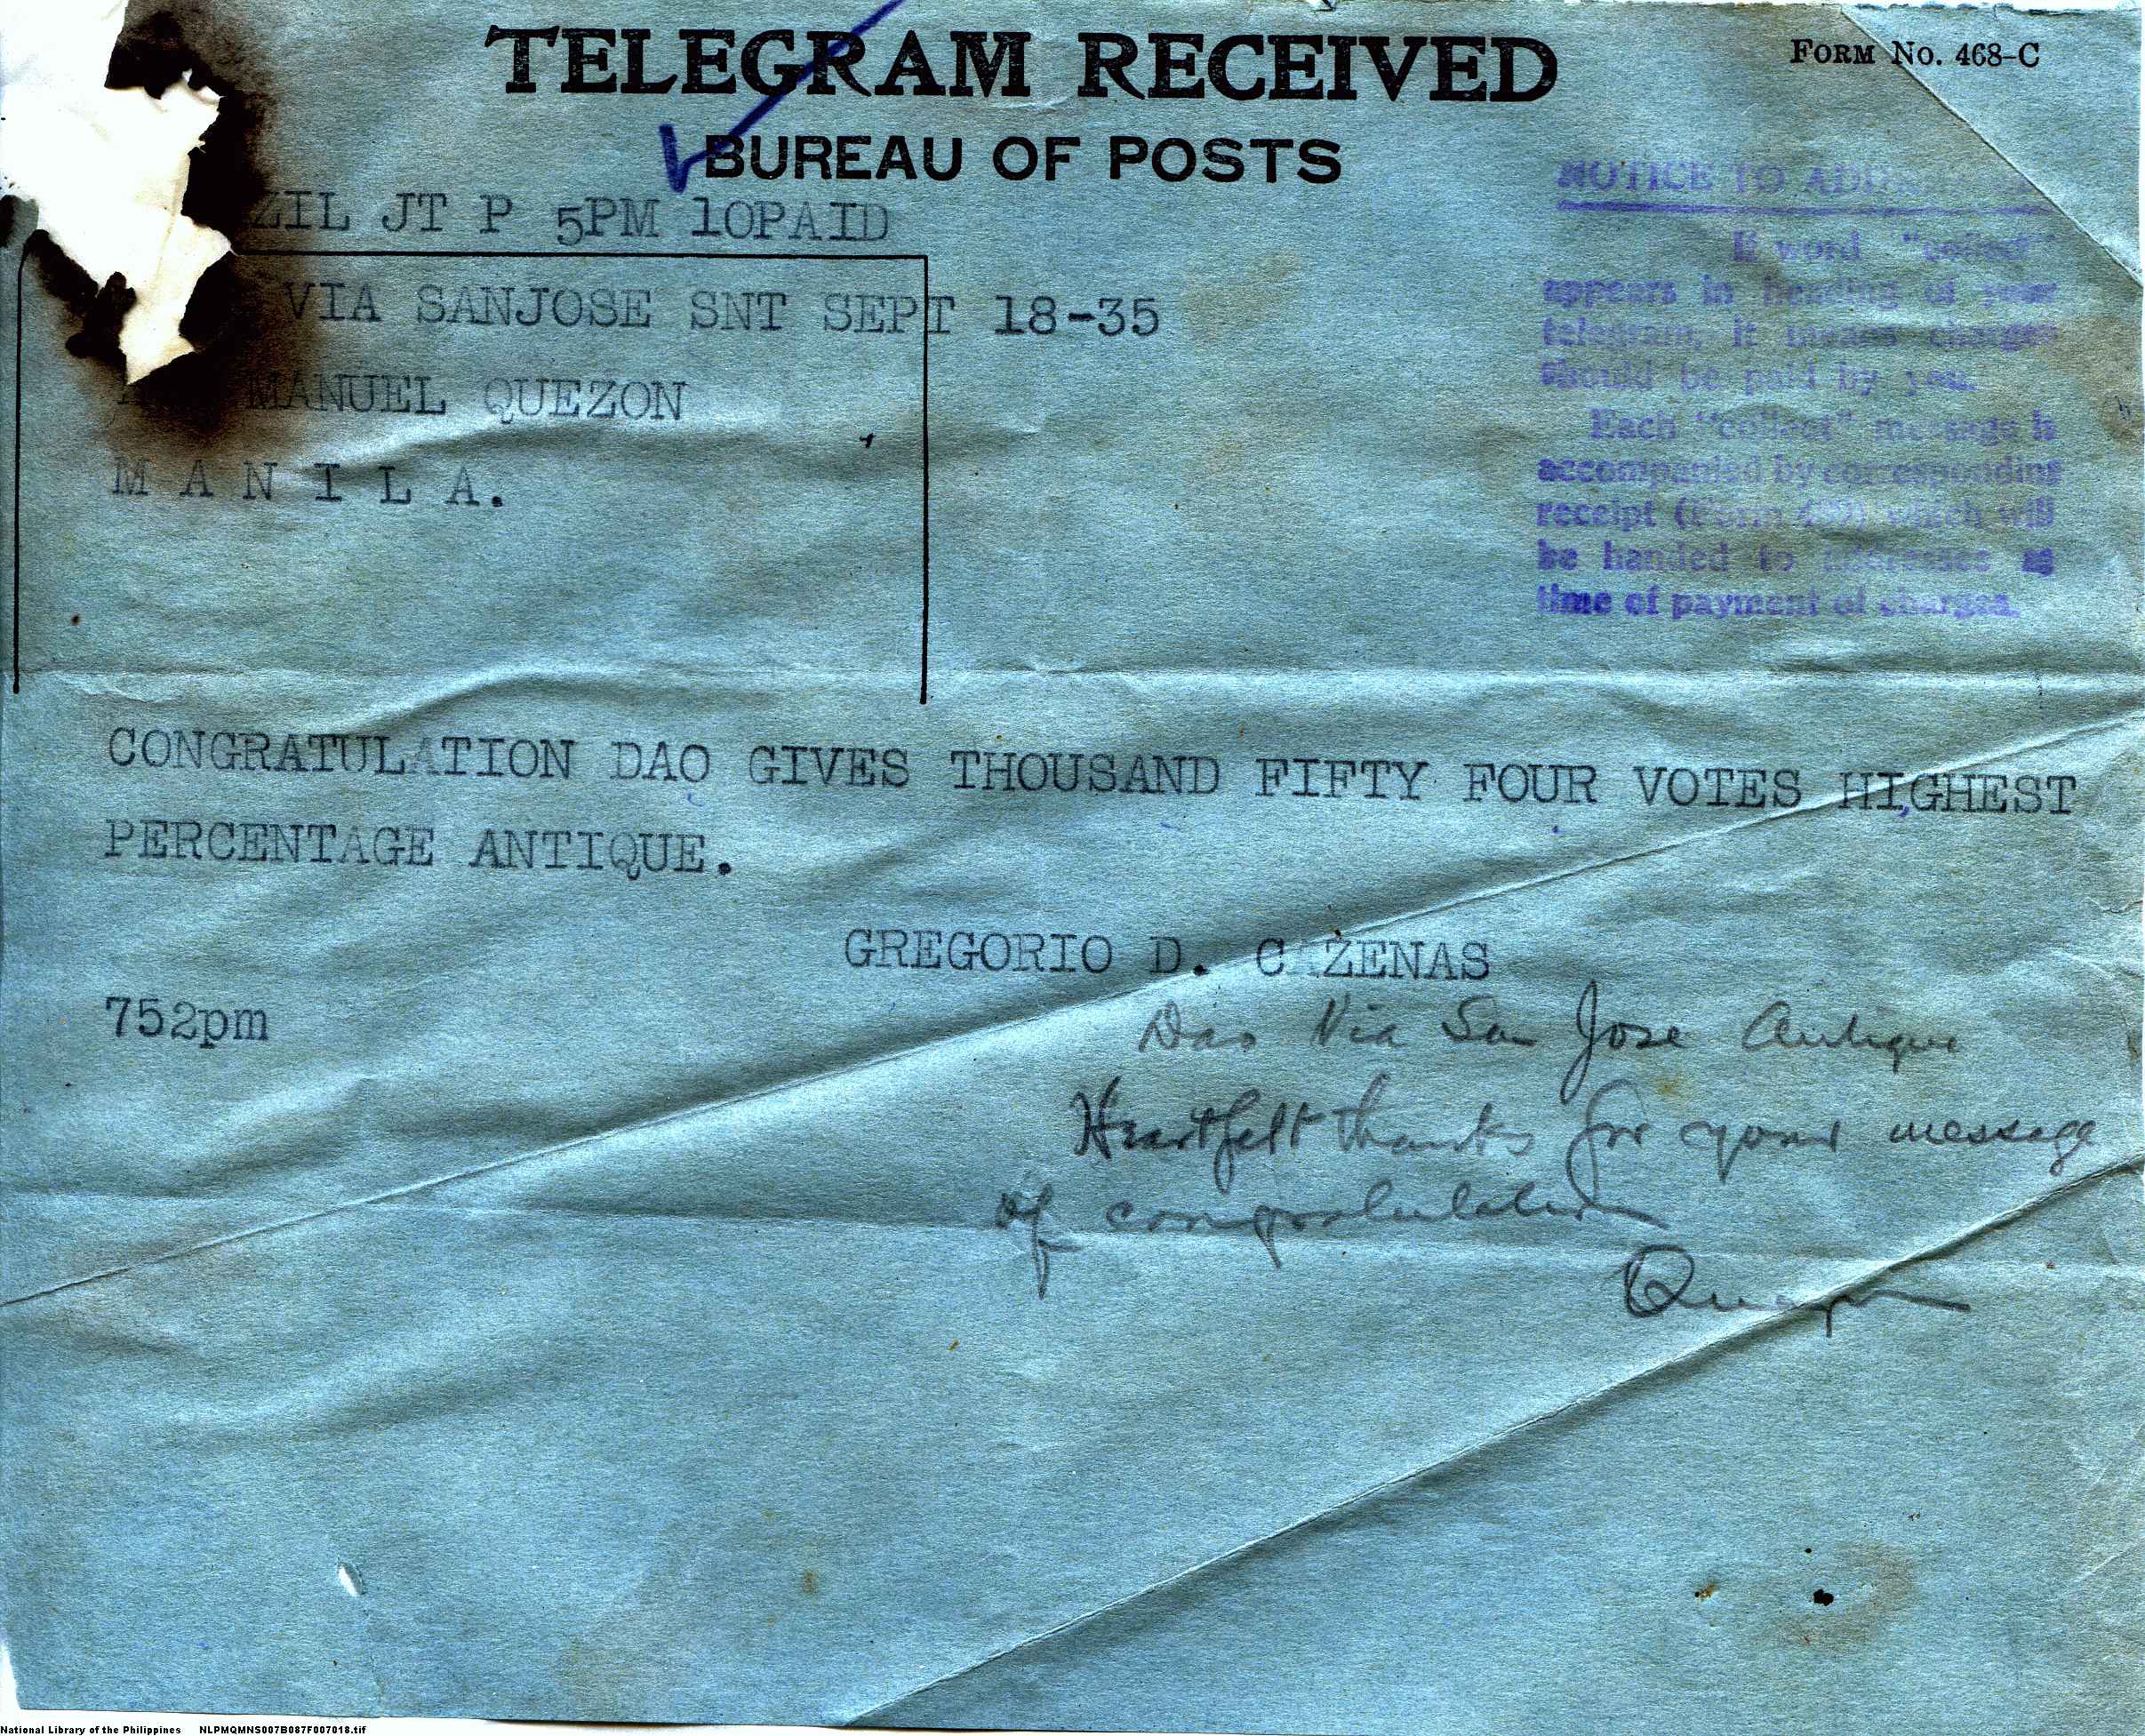 TELEGRAM RECEIVED
FORM NO. 468-C
BUREAU OF POSTS
ZIL JT P 5PM 10PAID
VIA SANJOSE SNT SEPT 18-35
MANUEL QUEZON
M A N I L A.
NOTICE TO
If word "collect"
appears in heading of your
telegram, it means charges
should be paid by you.
Each "collect" message is
accompanied by corresponding
receipt (Form 469) which will
be handed to addressee at
time of payment of charges.
CONGRATULATION DAO GIVES THOUSAND FIFTY FOUR VOTES HIGHEST
PERCENTAGE ANTIQUE.
GREGORIO D. CAZENAS
752pm
Dao Via San Jose Antique
Heartfelt thanks for your message
of congratulation
Quezon
National Library of the Philippines NLPMQMNS007B087F007018.tif